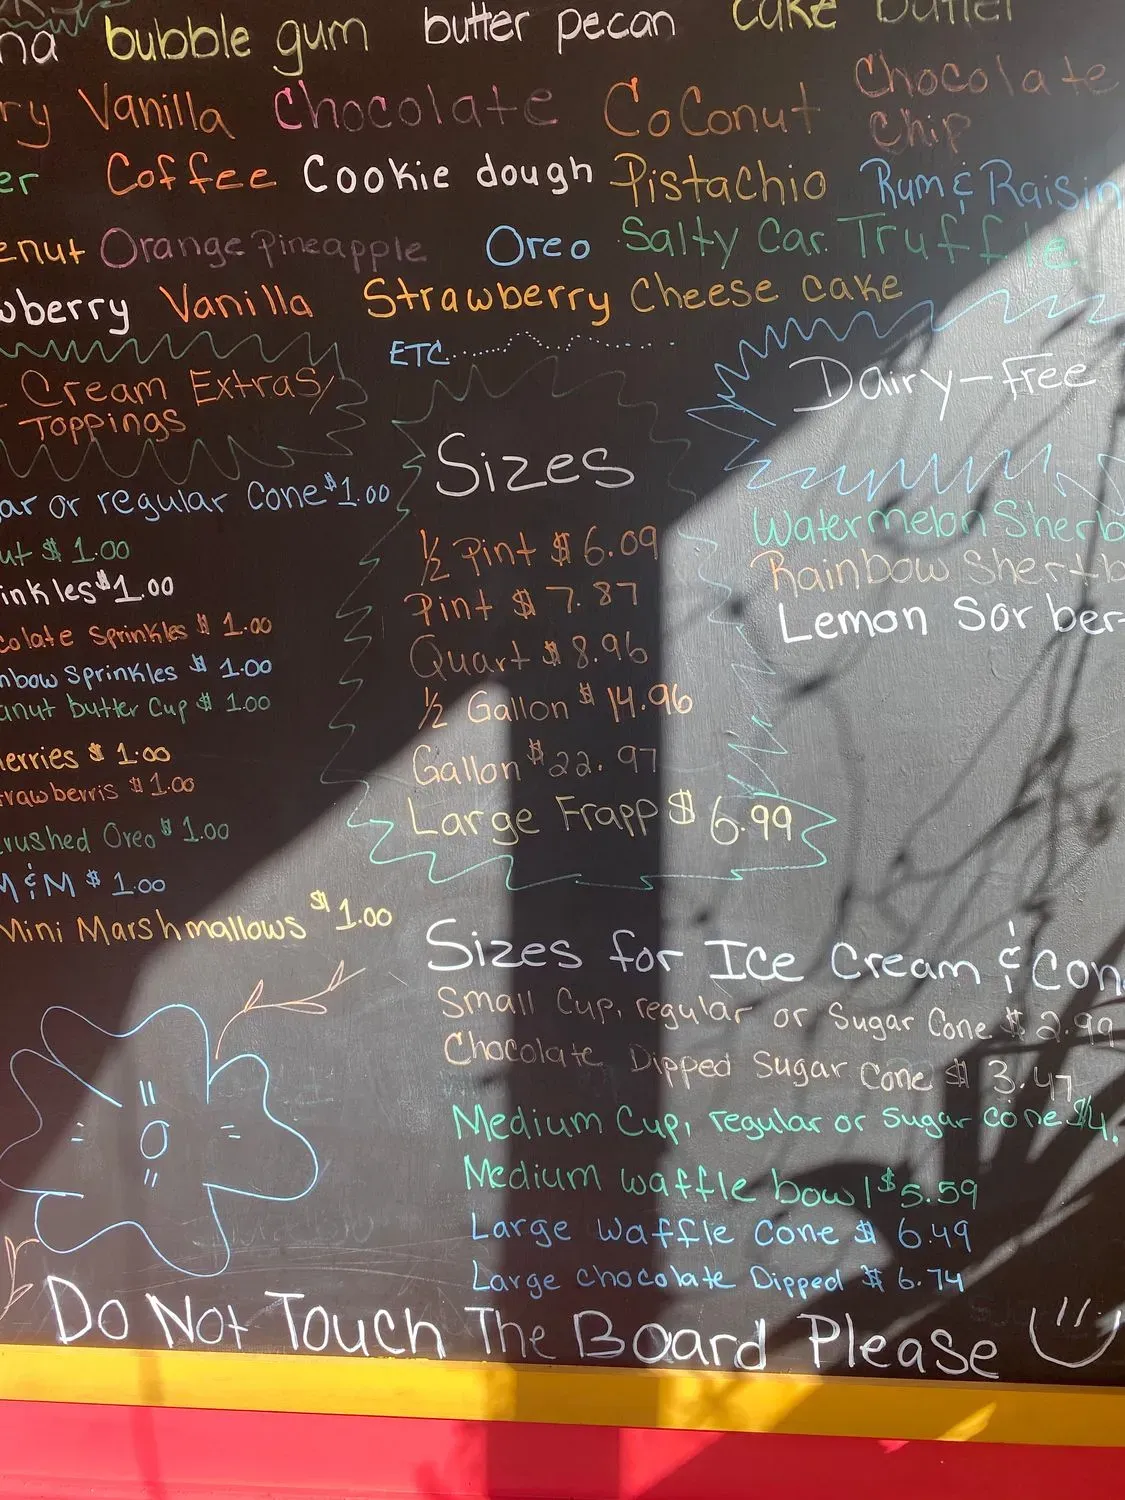 bubble gum butter pecan cake batter
Vanilla Chocolate CoConut Chocolate
Chip
Coffee Cookie dough Pistachio Rum & Raisin
Orange Pineapple Oreo Salty Car. Truffle
Vanilla Strawberry Cheese cake
ETC
Cream Extras/
Toppings
or regular Cone $1.00
$ 1.00
$1.00
Sprinkles $ 1.00
Sprinkles $ 1.00
butter Cup $ 1.00
$ 1.00
$ 1.00
Oreo $ 1.00
M&M $ 1.00
Mini Marshmallows $1.00
Sizes
1/2 Pint $ 6.09
Pint $ 7.87
Quart $ 8.96
1/2 Gallon $ 14.96
Gallon $22.97
Large Frapp $ 6.99
Dairy-free
Watermelon Sherb
Rainbow Shertb
Lemon Sorber
Sizes for Ice Cream & Con
Small Cup, regular or Sugar Cone $ 2.99
Chocolate Dipped Sugar Cone $ 3.47
Medium Cup, regular or Sugar cone $4.
Medium waffle bowl $5.59
Large Waffle Cone $ 6.49
Large chocolate Dipped $ 6.74
Do Not Touch The Board Please